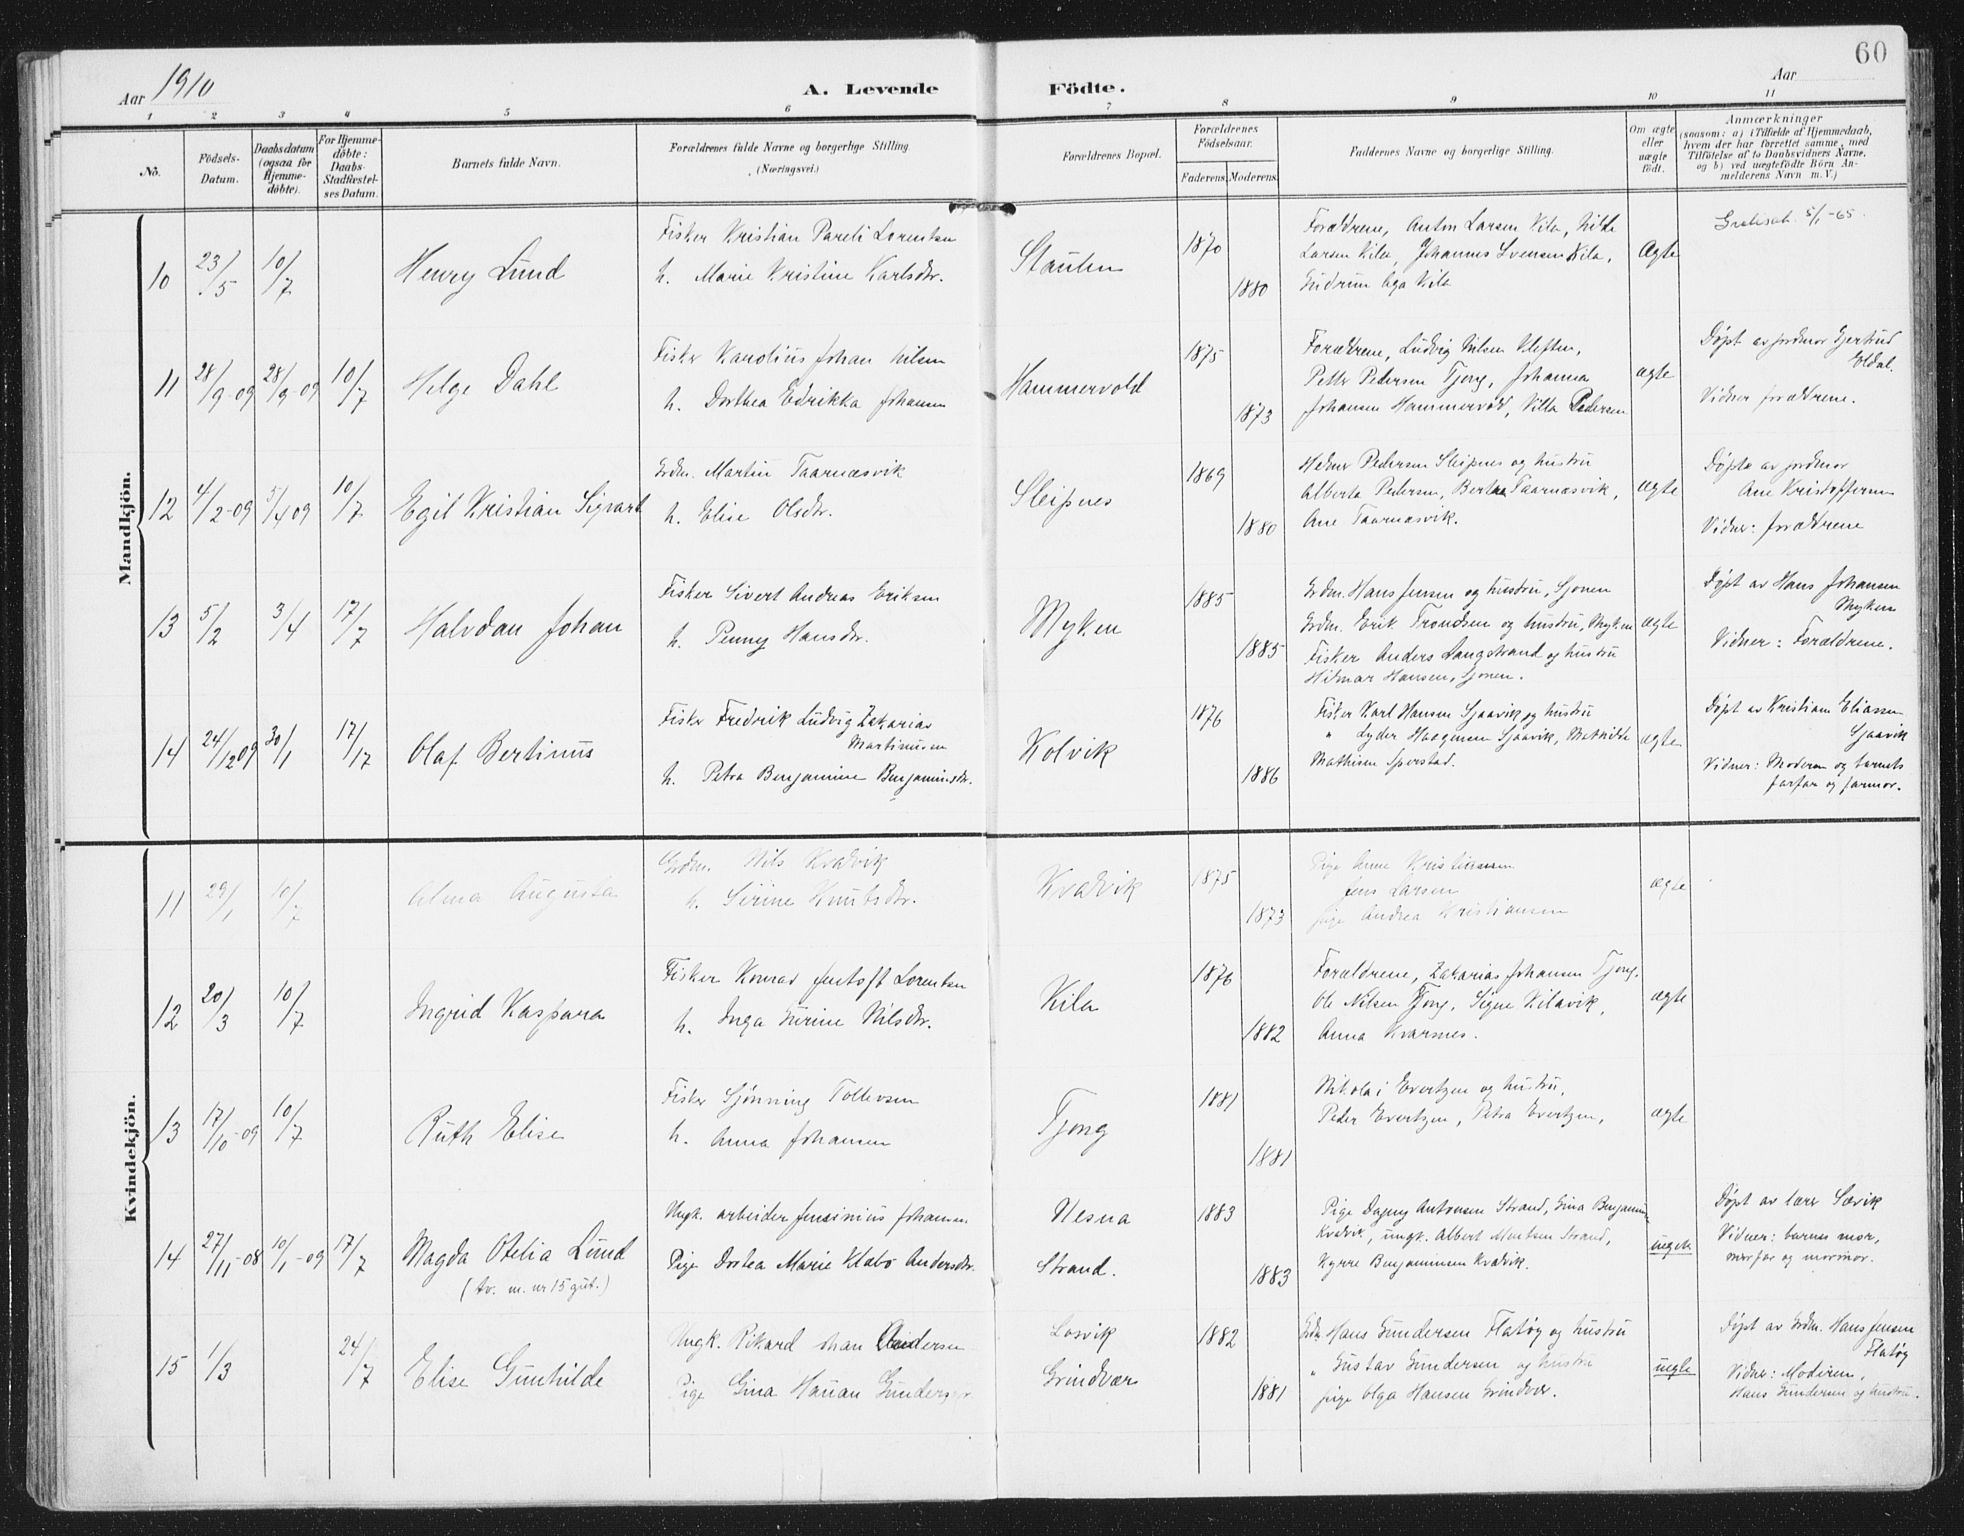 60
Aar 1910
A. Levende
Födte.
Aar
1 2 3 4 5 6 7 8 9 10 11
No.
Födsels-
Datum.
Daabsdatum
(ogsaa for
Hjemme-
döbte).
For Hjemme-
döbte:
Daabs-
Stadfæstel-
ses Datum.
Barnets fulde Navn.
Forældrenes fulde Navne og borgerlige Stilling
(Næringsvei.)
Forældrenes Bopæl.
Forældrenes
Födselsaar.
Faderens.
Moderens.
Faddernes Navne og borgerlige Stilling.
Om ægte
eller
uægte
födt.
Anmærkninger
(saasom: a) i Tilfælde af Hjemmedaab,
hvem der har forrettet samme, med
Tilföielse af to Daabsvidners Navne,
og b) ved uegtefödte Börn An-
melderens Navn m. V.)
Mandkjön.
10
23/5
10/7
Henry Lund
Fisker Kristian Pareli Lorentsen
h. Marie Kristine Karlsdtr.
Staulen
1870
1880
Forældrene, Anton Larsen Kila,
Larsen Kila, Johannes Svensen Kila,
Gudrun Aga Kila
Ægte
5/1-65.
11
28/9-09
28/9-09
10/7
Helge Dahl
Fisker Karolius Johan Nilsen
h. Dorthea Edrikka Johansen
Hammervold
1875
1873
Forældrene, Ludvig Nilsen Kleften,
Petter Pedersen Tjong, Johanna
Johansen Hammervold, Vilta Pedersen
ægte
Døpt av jordmor Gjertrud
Eldal.
Vidner forældrene.
12
4/2-09
5/4 09
10/7
Egil Kristian Sigvart
Grdm. Martin Taarnæsvik
h. Elise Olsdtr.
Sleipnes
1869
1880
Hedner Pedersen Sleipnes og hustru
Alberta Pedersen, Bertha Taarnæsvik,
Ane Taarnæsvik.
ægte
Døpt av jordmor
Ane Kristoffersen
Vidner: forældrene
13
5/2
3/4
17/7
Halvdan Johan
Fisker Sivert Andreas Eriksen
h. Penny Hansdtr.
Myken
1885
1885
Grdm. Hans Jensen og hustru, Sjonen
Grdm. Erik Trondsen og hustru, Myken
Fisker Anders Langstrand og hustru
Hilmar Hansen, Sjonen.
ægte
Døpt av Hans Johansen
Myken
Vidner: Forældrene.
14
24/12 09
30/1
17/17
Olaf Bertinus
Fisker Fredrik Ludvig Zakarias
Martinusen
h. Petra Benjamine Benjaminsdtr.
Kolvik
1876
1886
Fisker Karl Hansen Sjaavik og hustru
" Lyder Haagensen Sjaavik, Mathilde
Mathisen Sperstad.
ægte
Døpt av Kristian Eliassen
Sjaavik
Vidner: Moderen og barnets
farfar og farmor.
Kvindekjön.
11
29/1
10/7
Alma Augusta
Grdm. Nils Kvadvik
h. Sirine Knutsdtr.
Kvadvik
1875
1873
Pige Anne Kristiansen
Jens Larsen
pige Andrea Kristiansen
ægte
12
20/3
10/7
Ingrid Kaspara
Fisker Konrad Jentoft Lorentsen
h. Inga Gurine Nilsdtr.
Kila
1876
1882
Forældrene, Zakarias Johansen Tjong,
Ole Nilsen Tjong, Signe Kilavik,
Anna Kvarnes.
ægte
13
17/10-09
10/7
Ruth Elise
Fisker Sjønning Tollevsen
h. Anna Johansen
Tjong
1881
1881
Nikolai Evertzen og hustru,
Peder Evertzen, Petra Evertzen,
ægte
14
27/11-08
10/1-09
17/7
Magda Otelia Lund
(tv. m. nr 15 gut.)
Ungk. arbeider Jensinius Johansen
Pige Dortea Marie Klæbo Andersdtr.
Nesna
Strand.
1883
1883
Pige Dagny Antonsen Strand, Gina Benjamin-
Kvadvik, ungk. Albert Mentsen Strand,
Kyrre Benjaminsen Kvadvik.
uegte
Døpt av lærer Sævik
Vidner: barnes mor,
morfar og mormor.
15
1/3
24/7
Elise Gunhilde
Ungk. Rikard Johan Andersen
Pige Gina Hanan Gundersen
Losvik
Grindvær
1882
1881
Grdm Hans Gundersen Flatøy og hustru
" Gustav Gundersen og hustru
pige Olga Hansen Grindvær.
uegte
Døpt av Grdm. Hans Jensen
Flatøy
Vidner: Moderen,
Hans Gundersen og hustru.